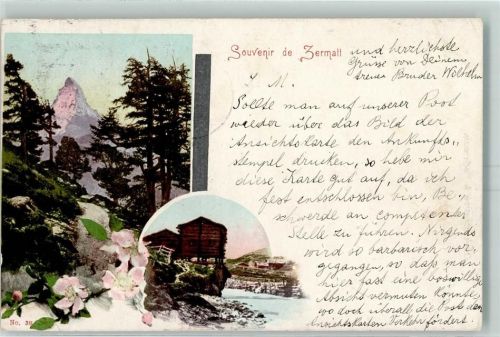 Souvenir de Zermatt
und herzlichste
Grüsse von Deinem
treuen Bruder Wilhelm
L. M.
Sollte man auf unserer Post
wieder über das Bild der
Ansichtskarte den Ankunfts=
stempel drucken, so hebe mir
diese Karte gut auf, da ich
fest entschlossen bin, Be-
schwerde an competenter
Stelle zu führen. Nirgends
wird so barbarisch vor-
gegangen, so daß man
hier fast eine boswillige
Absicht vermuten könnte,
wo doch überall die Post den
Ansichtskarten Verkehr fördert.